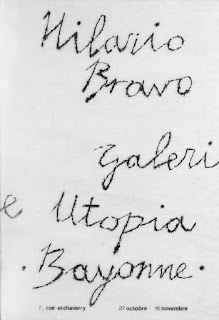 Hilario
Bravo
galeri
e Utopia
· Bayonne ·
7, rue etcheverry 27 octobre - 16 novembre